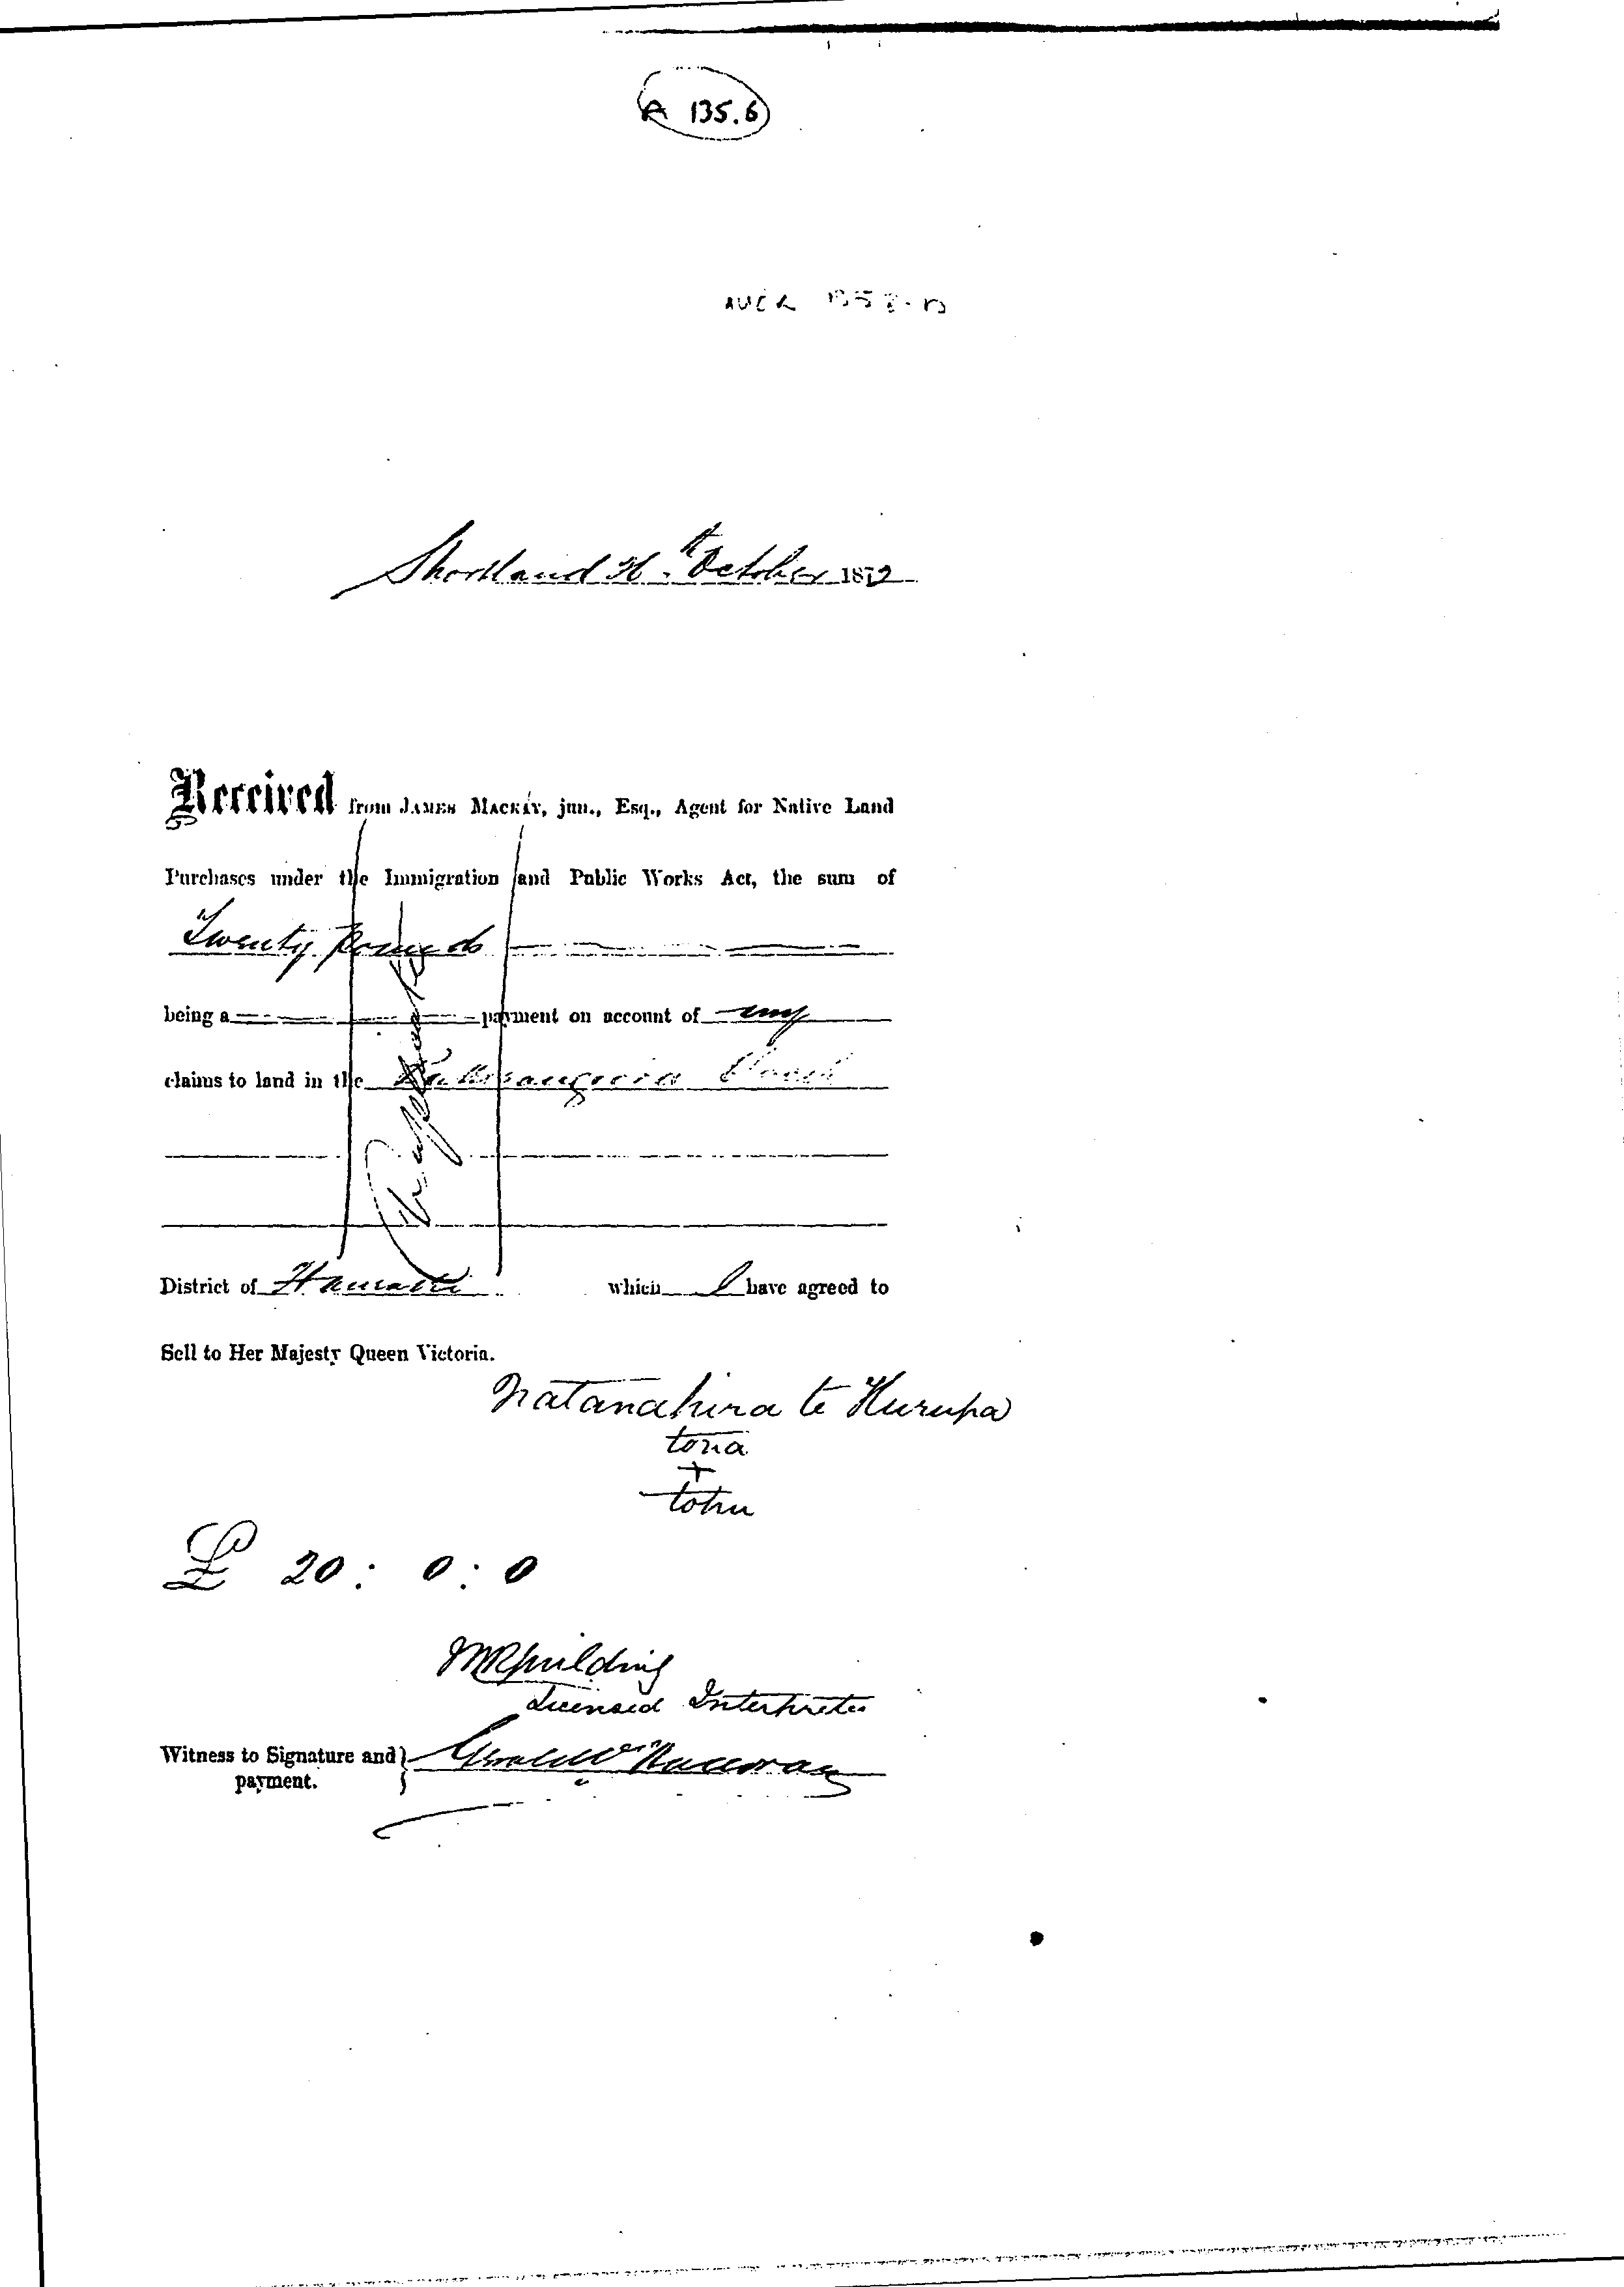 A 135.6
AUCK
Shortland October 187
Received from JAMES MACKAY, jun., Esq., Agent for Native Land
Purchases under the Immigration and Public Works Act, the sum of
Twenty Pounds
being a payment on account of my
claims to land in the Block
District of Hauraki which I have agreed to
Sell to Her Majesty Queen Victoria.
Natanahira te Hurupa
tona
+
tohu
£ 20 : 0 : 0
Licensed Interpreter
Witness to Signature and }
payment.